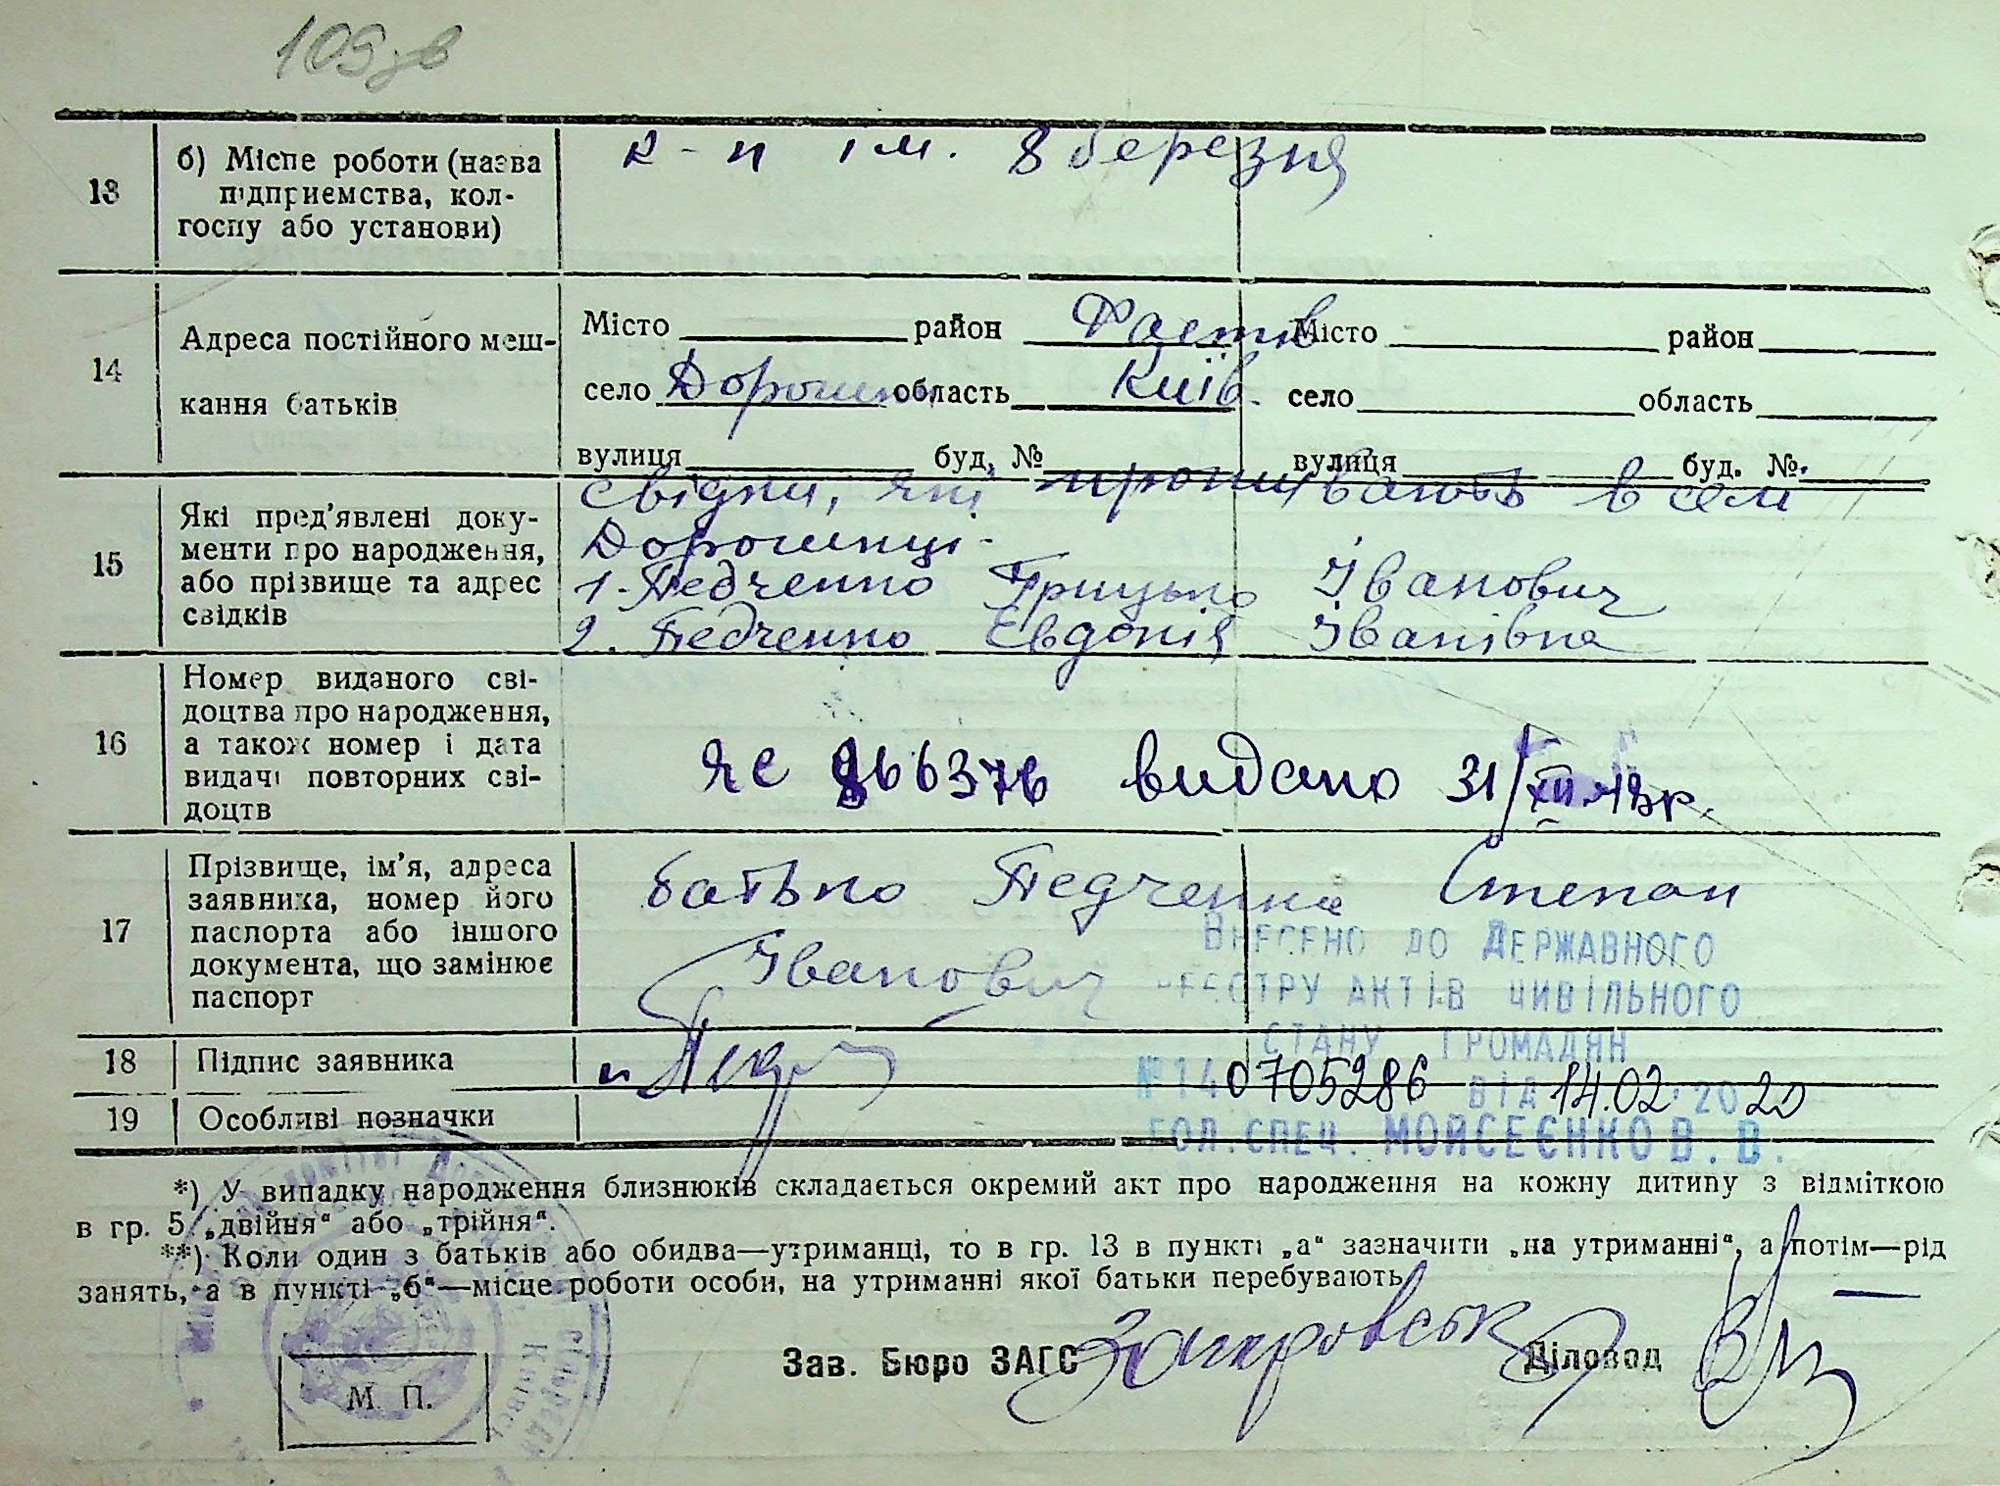 109 зв
13
б) Місце роботи (назва підприємства, колгоспу або установи)
к-п ім. 8 березня
14
Адреса постійного мешкання батьків
Місто район Фастів
село Дорошин. область Київ.
вулиця буд. №
Місто район
село область
вулиця буд. №
15
Які пред'явлені документи про народження, або прізвище та адрес свідків
свідки, які проживають в селі
Дорошинці.
1. Педченко Грицько Іванович
2. Педченко Євдокія Іванівна
16
Номер виданого свідоцтва про народження, а також номер і дата видачі повторних свідоцтв
ЯЄ 866376 видано 31/XII
17
Прізвище, ім'я, адреса заявника, номер його паспорта або іншого документа, що замінює паспорт
батько Педченко Степан
Іванович
Внесено до Державного
реєстру актів цивільного
стану громадян
№ 140705286 від 14.02.2020
Гол. спец. Мойсеєнко В. В.
18
Підпис заявника
19
Особливі позначки
*) У випадку народження близнюків складається окремий акт про народження на кожну дитину з відміткою
в гр. 5 „двійня“ або „трійня“.
**) Коли один з батьків або обидва—утриманці, то в гр. 13 в пункті „а“ зазначити „на утриманні“, а потім—рід
занять, а в пункті „б“—місце роботи особи, на утриманні якої батьки перебувають.
Зав. Бюро ЗАГС
Діловод
М. П.